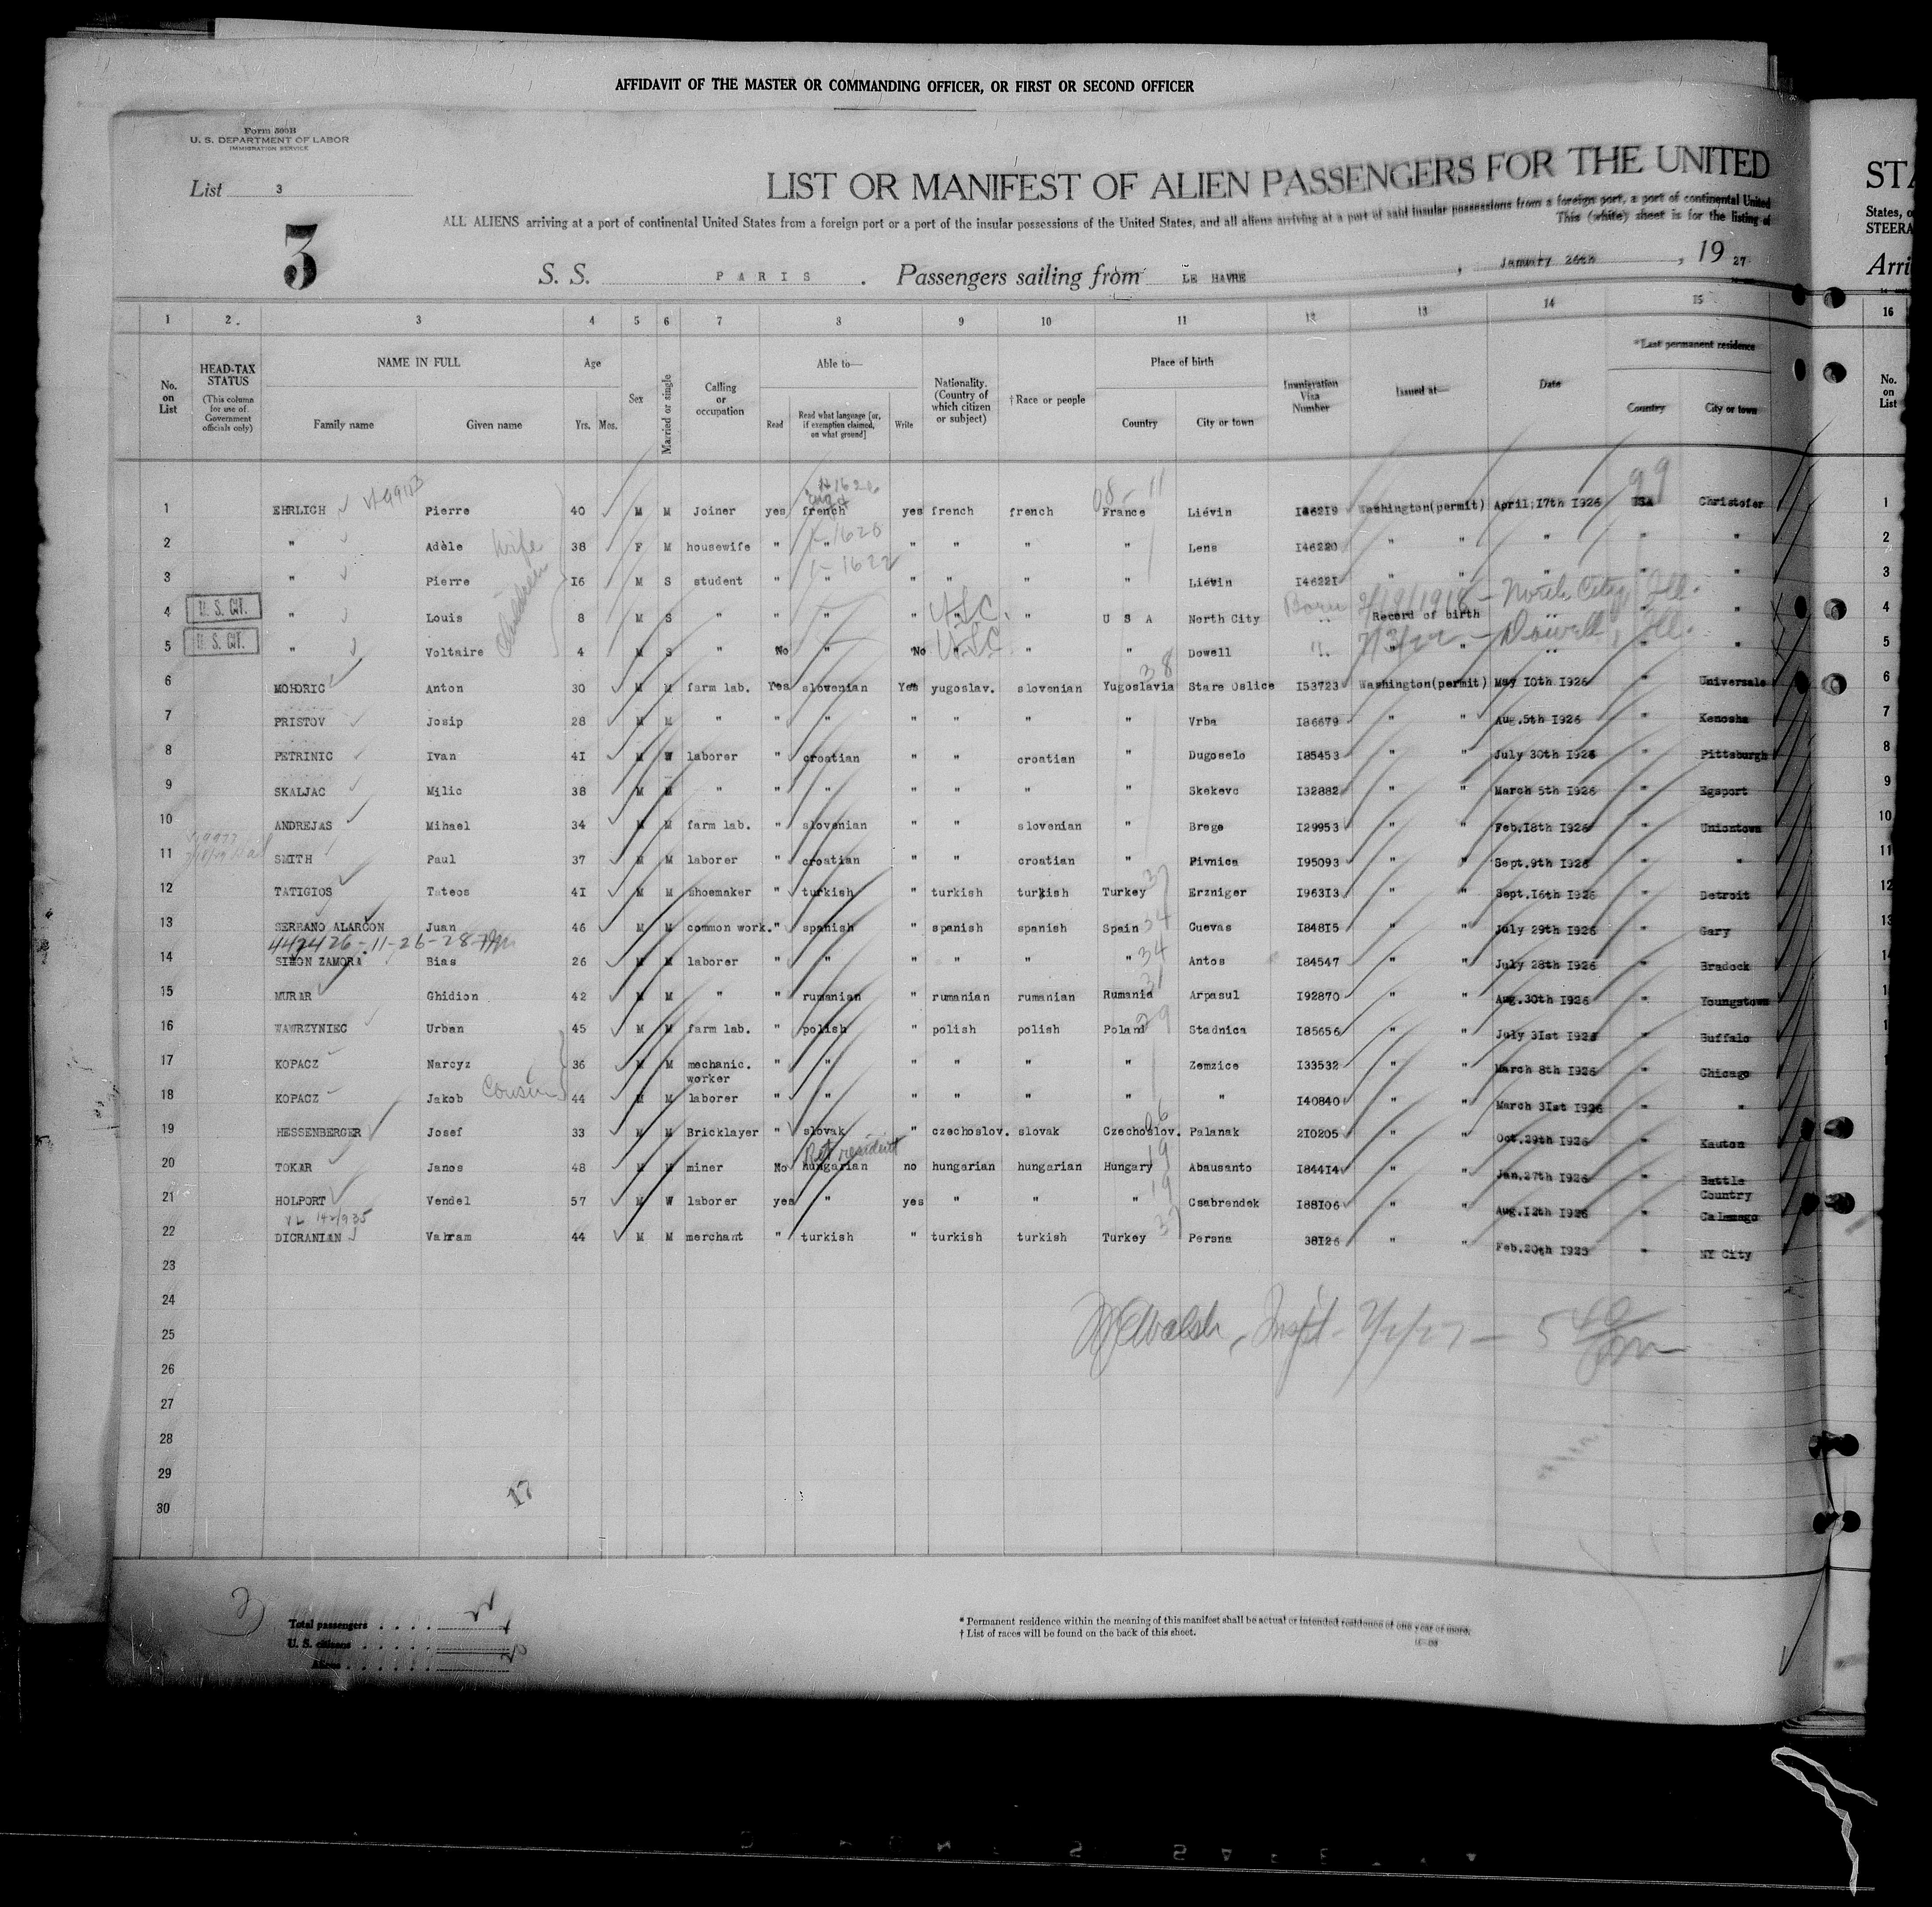 AFFIDAVIT OF THE MASTER OR COMMANDING OFFICER, OR FIRST OR SECOND OFFICER
Form 500B
U. S. DEPARTMENT OF LABOR
IMMIGRATION SERVICE
List 3
LIST OR MANIFEST OF ALIEN PASSENGERS FOR THE UNITED
STA
ALL ALIENS arriving at a port of continental United States from a foreign port or a port of the insular possessions of the United States, and all aliens arriving at a port of said insular possessions from a foreign port, a port of continental United
States, o
This (white) sheet is for the listing of
STEERA
3
S. S. PARIS . Passengers sailing from LE HAVRE , January 26th , 19 27
Arri
1 2. 3 4 5 6 7 8 9 10 11 12 13 14 15 16
No. on List
HEAD-TAX STATUS
(This column for use of Government officials only)
NAME IN FULL
Family name Given name
Age
Yrs. Mos.
Sex
Married or single
Calling or occupation
Able to—
Read
Read what language [or, if exemption claimed, on what ground]
Write
Nationality. (Country of which citizen or subject)
†Race or people
Place of birth
Country City or town
Immigration Visa Number
Issued at—
Date
*Last permanent residence
Country City or town
No. on List
1 EHRLICH Pierre 40 M M Joiner yes french yes french french France Liévin I46219 Washington(permit) April,17th 1926 USA Christofer 1
2 " Adèle wife 38 F M housewife " " " " " " Lens I46220 " " " " " 2
3 " Pierre 16 M S student " " " " " " Liévin I46221 " " " " " 3
Children
4 U. S. CIT. " Louis 8 M S " " " " " " U S A North City Born 2/19/1918 - North City, Ill. Record of birth " " 4
5 U. S. CIT. " Voltaire 4 M S No " No " " " Dowell 7/3/22 - Dowell, Ill. " " " 5
6 MOHORIC Anton 30 M M farm lab. Yes slovenian Yes yugoslav. slovenian Yugoslavia Stare Oslice I53723 Washington(permit) May 10th 1926 " Universale 6
7 PRISTOV Josip 28 M M " " " " " " " Vrba I86679 " " Aug.5th 1926 " Kenosha 7
8 PETRINIC Ivan 41 M W laborer " croatian " " croatian " Dugoselo I85453 " " July 30th 1926 " Pittsburgh 8
9 SKALJAC Milic 38 M M " " " " " " " Skekevc I32882 " " March 5th 1926 " Egsport 9
10 ANDREJAS Mihael 34 M M farm lab. " slovenian " " slovenian " Brege I29953 " " Feb.18th 1926 " Uniontown 10
11 SMITH Paul 37 M M laborer " croatian " " croatian " Pivnica I95093 " " Sept.9th 1926 " " 11
12 TATIGIOS Tateos 41 M M shoemaker " turkish " turkish turkish Turkey Erzniger I96313 " " Sept.16th 1926 " Detroit 12
13 SERRANO ALARCON Juan 46 M M common work. " spanish " spanish spanish Spain 34 Cuevas I84815 " " July 29th 1926 " Gary 13
442426-11-26-28
14 SIMON ZAMORA Bias 26 M M laborer " " " " " " 34 Antos I84547 " " July 28th 1926 " Bradock
15 MURAR Ghidion 42 M M " " rumanian " rumanian rumanian Rumania 31 Arpasul I92870 " " Aug.30th 1926 " Youngstown
16 WAWRZYNIEC Urban 45 M M farm lab. " polish " polish polish Poland 29 Stadnica I85656 " " July 31st 1926 " Buffalo
17 KOPACZ Narcyz 36 M M mechanic. worker " " " " " " Zemzice I33532 " " March 8th 1926 " Chicago
18 KOPACZ Jakob Cousin 44 M M laborer " " " " " " " I40840 " " March 31st 1926 " "
19 HESSENBERGER Josef 33 M M Bricklayer " slovak " czechoslov. slovak Czechoslov. 06 Palanak 210205 " " Oct.29th 1926 " Kauton
Ret resident
20 TOKAR Janos 48 M M miner No hungarian no hungarian hungarian Hungary 19 Abausanto I84414 " " Jan.27th 1926 " Battle Country
21 HOLPORT Vendel 57 M W laborer yes " yes " " " 19 Csabrendek I88106 " " Aug.12th 1926 " Calumago
22 DICRANIAN Vahram 44 M M merchant " turkish " turkish turkish Turkey 37 Persna 38126 " " Feb.20th 1925 " NY City
23
24
25
26
27
28
29
30
Walsh, Inspt - 2/2/27 - 5 40 pm
17
3
Total passengers . . . . 22
U. S. citizens . . . . . 2
Aliens . . . . . . 20
* Permanent residence within the meaning of this manifest shall be actual or intended residence of one year or more.
† List of races will be found on the back of this sheet.